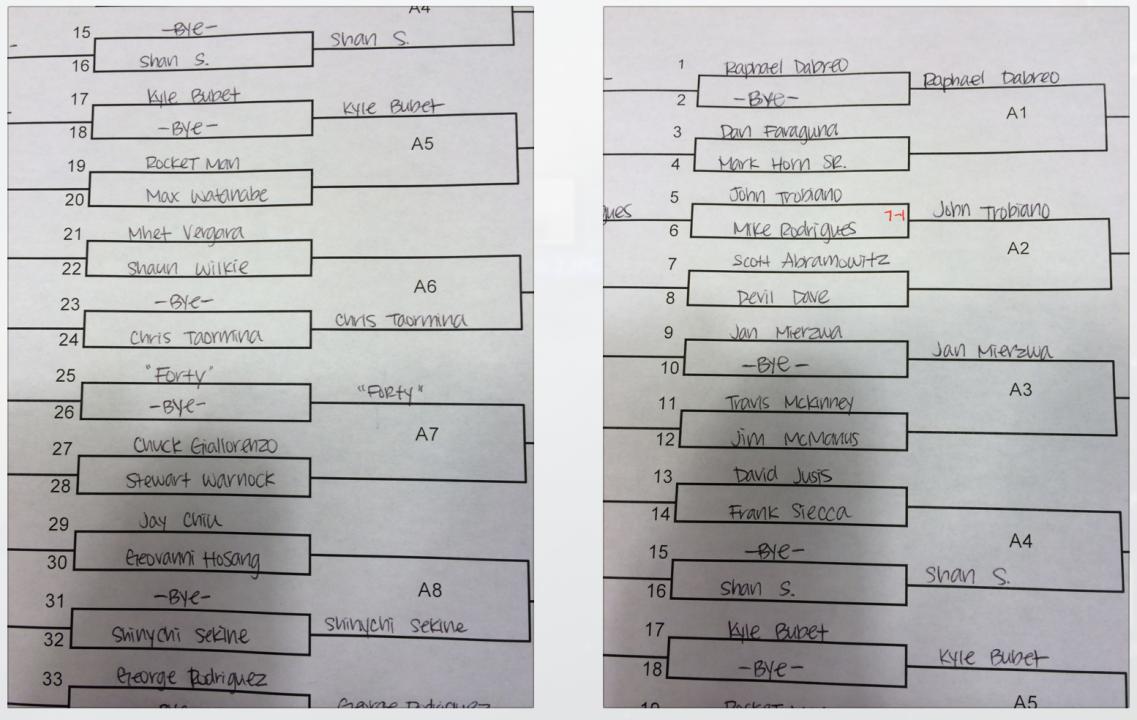 A4
15 -BYE-
Shan S.
16 Shan S.
17 Kyle Bubet
Kyle Bubet
18 -BYE-
A5
19 Rocket Man
20 Max Watanabe
21 Mhet Vergara
22 Shaun Wilkie
A6
23 -BYE-
Chris Taormina
24 Chris Taormina
25 "Forty"
"Forty"
26 -BYE-
A7
27 Chuck Giallorenzo
28 Stewart Warnock
29 Jay Chiu
30 Geovanni Hosang
A8
31 -BYE-
Shinychi Sekine
32 Shinychi Sekine
33 George Rodriguez
George Rodriguez
1 Raphael Dabreo
Raphael Dabreo
2 -BYE-
A1
3 Dan Faraguna
4 Mark Horn SR.
5 John Trobiano
gues
7-1
John Trobiano
6 Mike Rodrigues
A2
7 Scott Abramowitz
8 Devil Dave
9 Jan Mierzwa
Jan Mierzwa
10 -BYE-
A3
11 Travis McKinney
12 Jim McManus
13 David Jusis
14 Frank Siecca
A4
15 -BYE-
Shan S.
16 Shan S.
17 Kyle Bubet
Kyle Bubet
18 -BYE-
A5